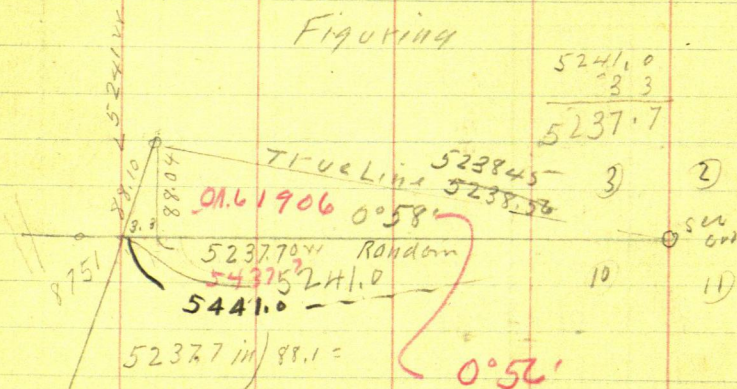 Figuring
5241.0
3 3
5237.7
5241
88.10
88.04
True Line 523845
5238.56
3 2
01.61906 0°58'
3.3
5237.70 Random
54375241.0
5441.0
8751
10 11
5237.7 in) 88.1 =
0°56'